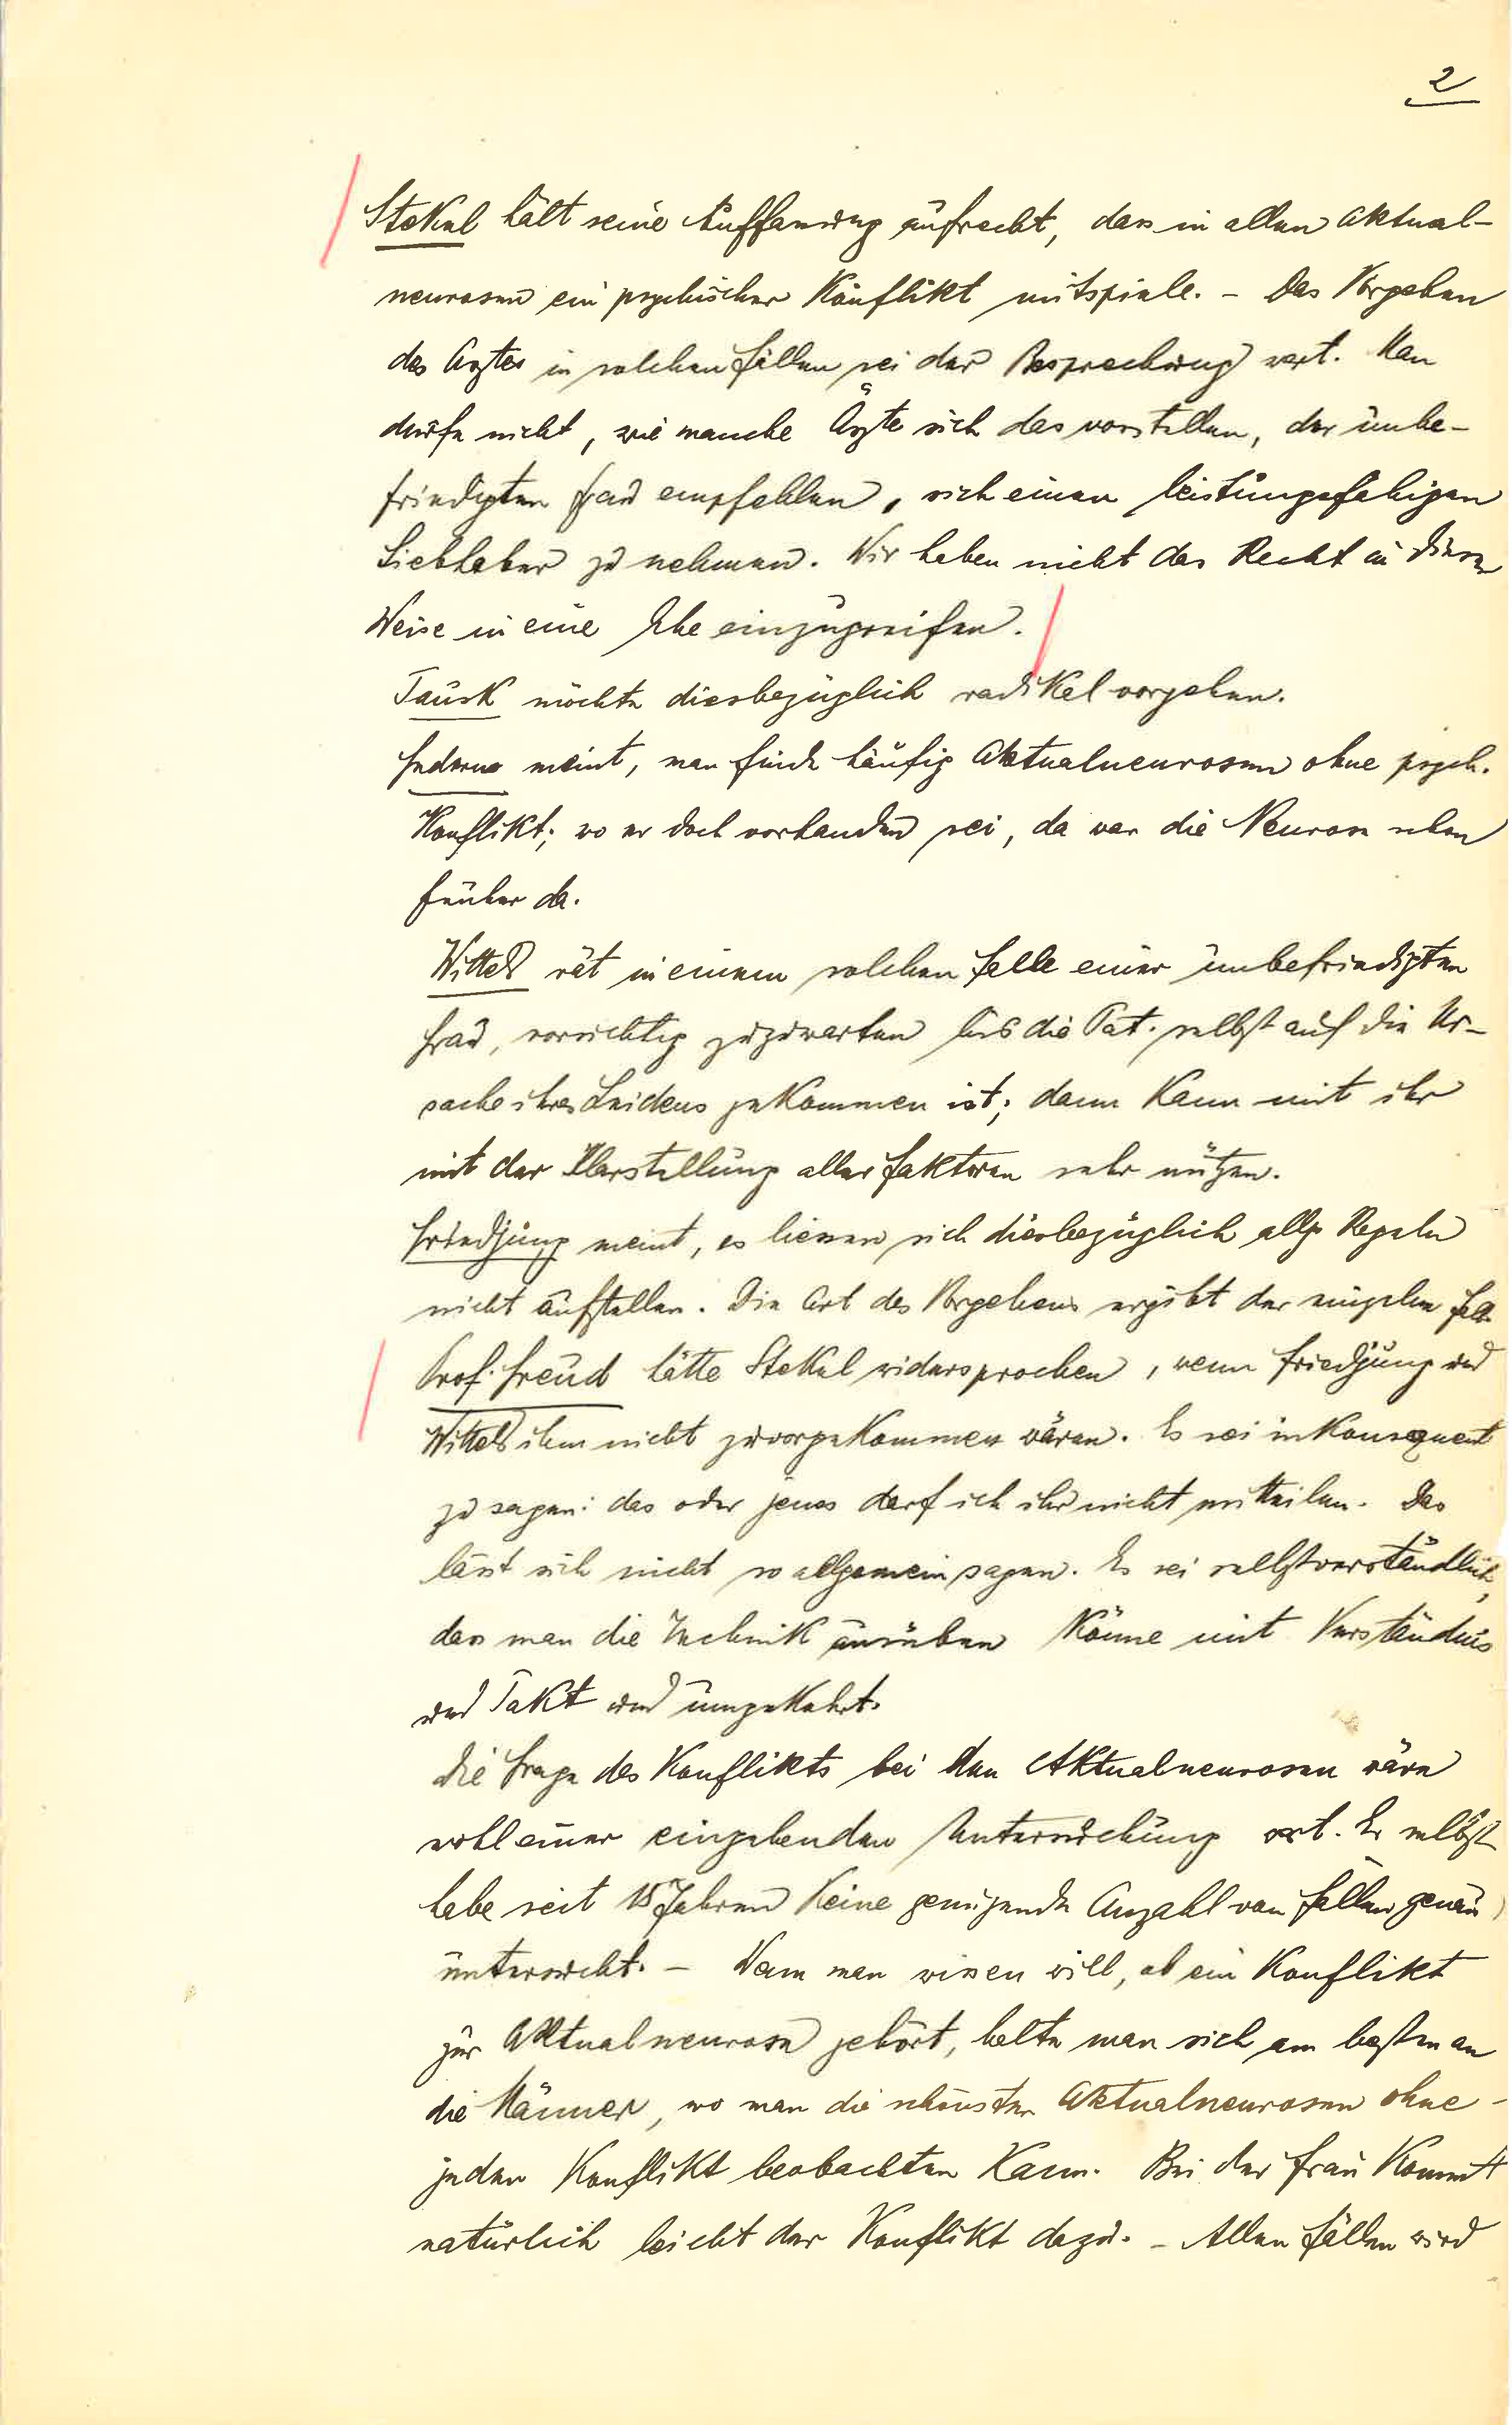 2
Stekel hält seine Auffassung aufrecht, dass in allen Aktual-
neurosen ein psychischer Konflikt mitspiele. – Das Vorgehen
des Arztes in solchen Fällen sei der Besprechung wert. Man
dürfe nicht, wie manche Ärzte sich das vorstellen, der unbe-
friedigten Frau empfehlen, sich einen leistungsfähigen
Liebhaber zu nehmen. Wir haben nicht das Recht in dieser
Weise in eine Ehe einzugreifen.
Tausk möchte diesbezüglich radikal vorgehen.
Federn meint, man finde häufig Aktualneurosen ohne psych.
Konflikt; wo er doch vorhanden sei, da war die Neurose schon
früher da.
Wittels rät in einem solchen Falle einer unbefriedigten
Frau, vorsichtig zuzuwarten bis die Pat. selbst auf die Ur-
sache ihres Leidens gekommen ist; dann kann mit ihr
mit der Klarstellung aller Faktoren sehr nützen.
Friedjung meint, es liessen sich diesbezüglich allg. Regeln
nicht aufstellen. Die Art des Vorgehens ergibt der einzelne Fall.
Prof. Freud hätte Stekel widersprochen, wenn Friedjung und
Wittels ihm nicht zuvorgekommen wären. Es sei inkonsequent
zu sagen: das oder jenes darf ich ihr nicht mitteilen. Das
lässt sich nicht so allgemein sagen. Es sei selbstverständlich,
dass man die Technik ausüben könne mit Verständnis
und Takt und umgekehrt.
Die Frage des Konflikts bei den Aktualneurosen wäre
wohl einer eingehenden Untersuchung wert. Er selbst
habe seit 15 Jahren keine genügende Anzahl von Fällen genau
untersucht. – Wenn man wissen will, ob ein Konflikt
zur Aktualneurose gehört, halte man sich am besten an
die Männer, wo man die schönsten Aktualneurosen ohne
jeden Konflikt beobachten kann. Bei der Frau kommt
natürlich leicht der Konflikt dazu. – Allen Fällen wird